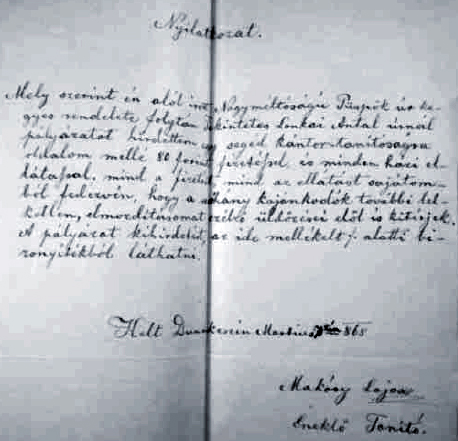 Nyilatkozat.
Mely szerint én alól irt Nagyméltóságú Püspök úr ke-
gyes rendelete folytán tekintetes Lonkai Antal úrnál
pályázatot hirdettem egy segéd kántor-tanitóságra
oldalom mellé 80 forint fizetéssel, és minden házi el-
látással, mind a fizetést mind az ellátást sajátom-
ból fedezvén, hogy a néhány kajánkodók további lel-
ketlen, elmozditásomat czélzó üldözései elől is kitérjek.
A pályázat kihirdetését, az ide mellékelt /. alatti bi-
zonyitékból láthatni.
Kelt Duna Martius 868
Makáry Lajos
Éneklő Tanitó.